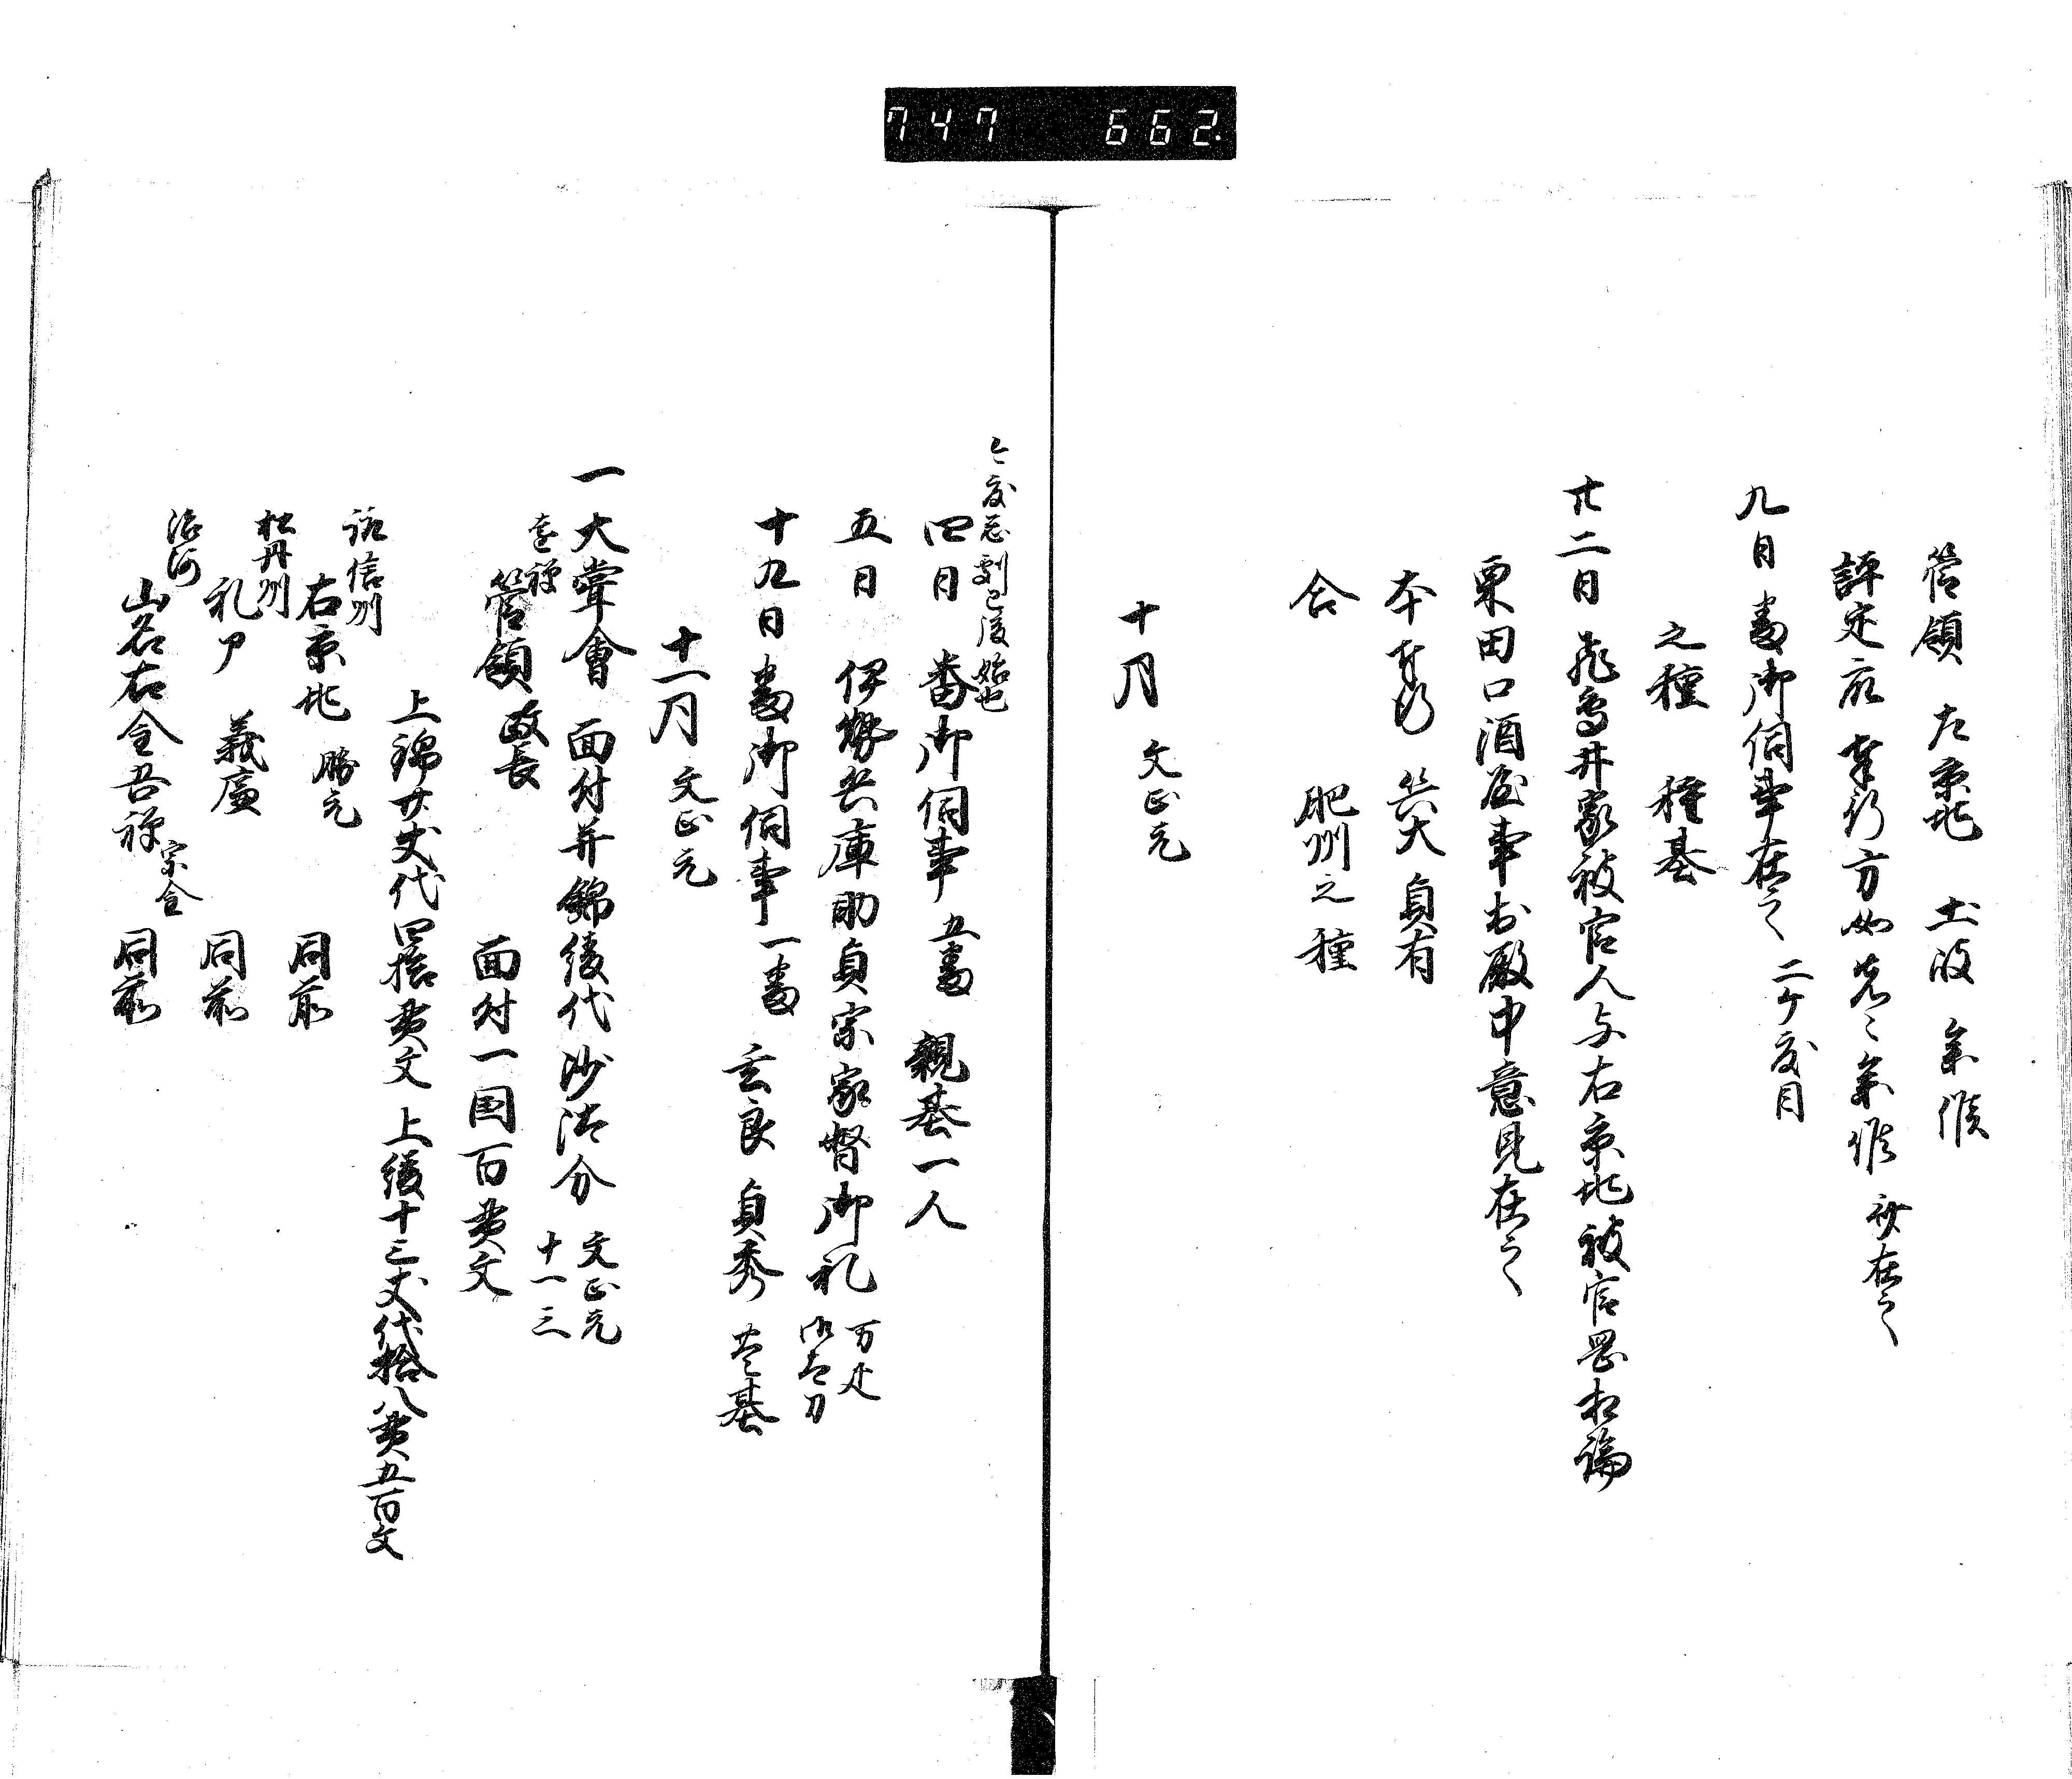 747 662
管領 左京兆 土岐 参候
評定衆 奉行方如先々参候 砂在之
九日 番御伺事在之 二ケ度目
之種 種基
廿二日 飛鳥井家被官人与右京兆被官罡相論
粟田口酒屋事於殿中意見在之
本奉行 筑大 貞有
合 肥州 之種
十月 文正元
今度忩劇已後始也
四日 番御伺事 五番 親基一人
五日 伊勢兵庫助貞宗家督御礼 万疋 御太刀
十九日 番御伺事 一番 玄良 貞秀 基
十一月 文正元
一大嘗會 面付并錦綾代沙汰分 文正元 十一 三
管領 政長 面付一国百貫文
上錦廿丈代四拾貫文 上綾十三丈代拾八貫五百文
信州
右京兆 勝元 同前
松丹州
義廉 同前
治河
山名右金吾禅 宗全 同前